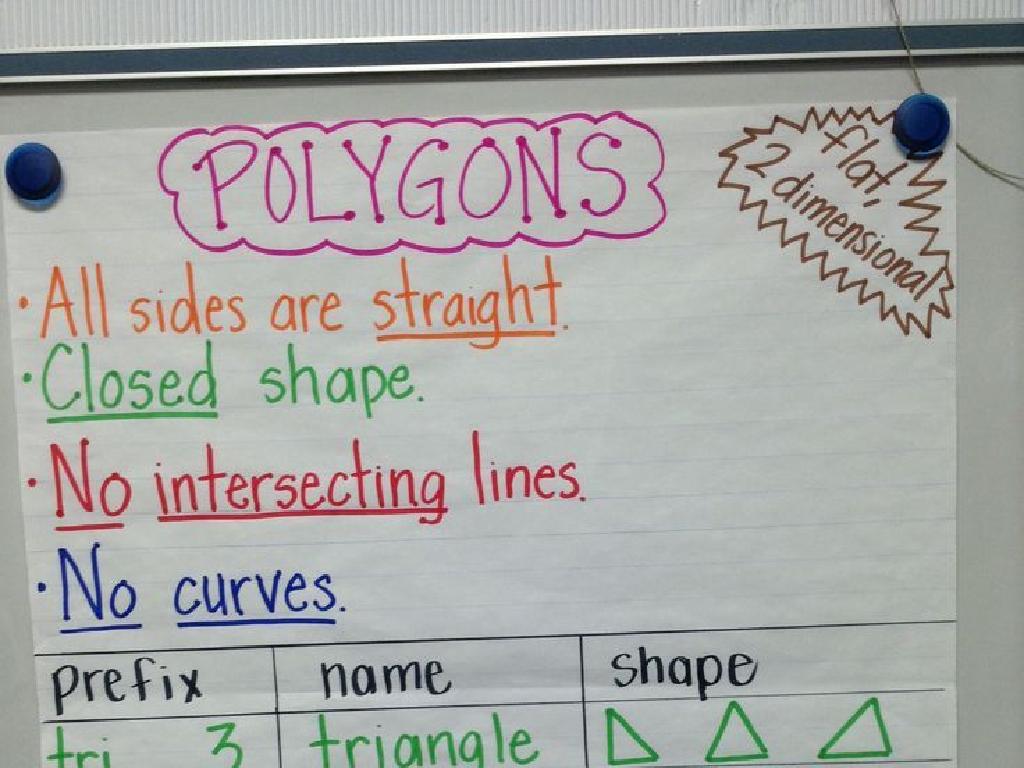 POLYGONS
flat,
2 dimensional
· All sides are straight.
· Closed shape.
· No intersecting lines.
· No curves.
prefix name shape
tri 3 triangle